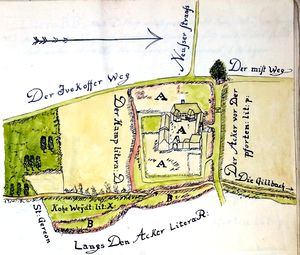 Neußer straaß
Der mist Weg
Der Ivekoffer Weg
A
Der Kamp litera: D.
A
A
Der Acker vor Der
pforten: lit: p:
Die Gillbach
St: Gereon
Kohe Weydt: lit: X.
B
B
Langs Den Acker Litera R: